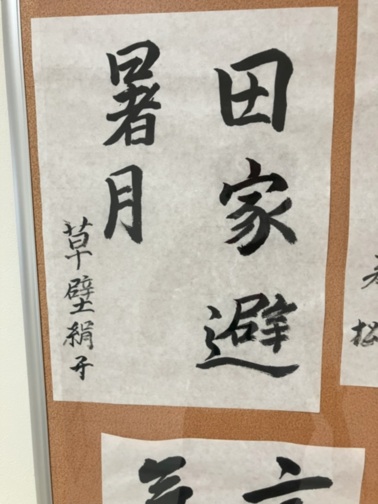 田家避
暑月
草壁絹子